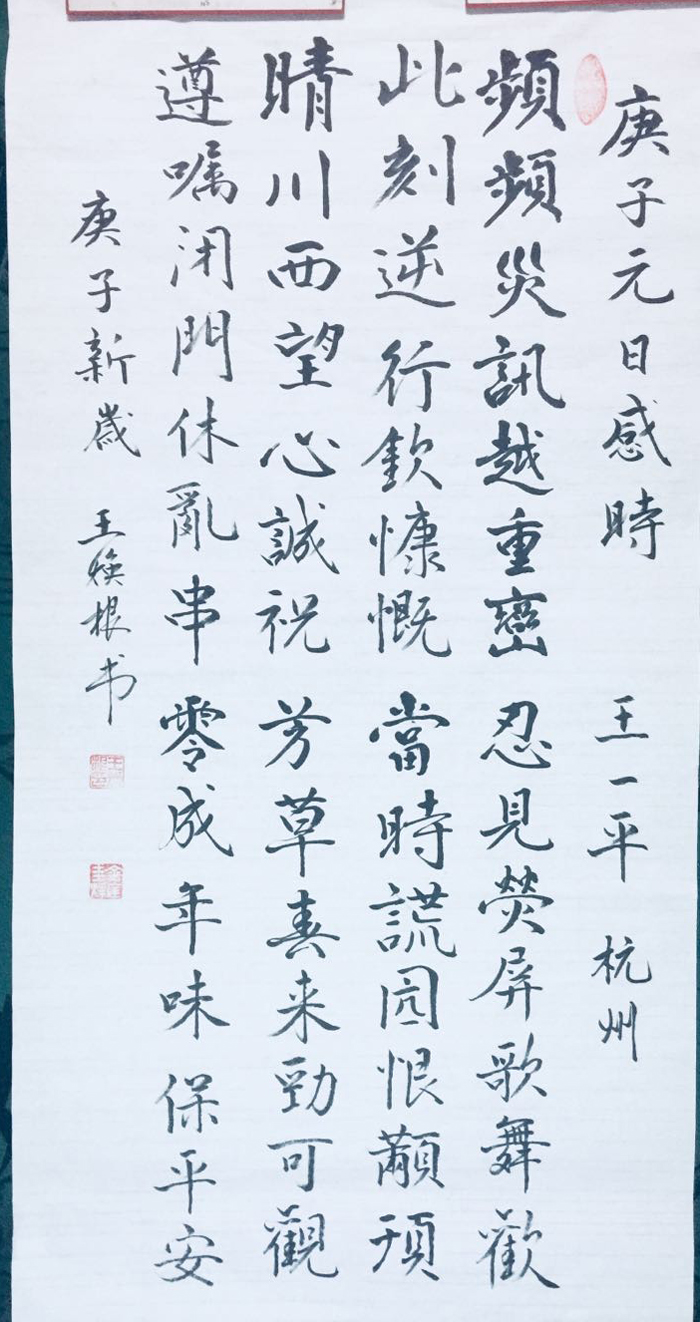 庚子元日感時 王一平 杭州
頻頻災訊越重巒 忍見熒屏歌舞歡
此刻逆行欽慷慨 當時謊囥恨顢頇
晴川西望心誠祝 芳草春来勁可觀
遵嘱闭門休亂串 零成年味保平安
庚子新歲 王焕根书